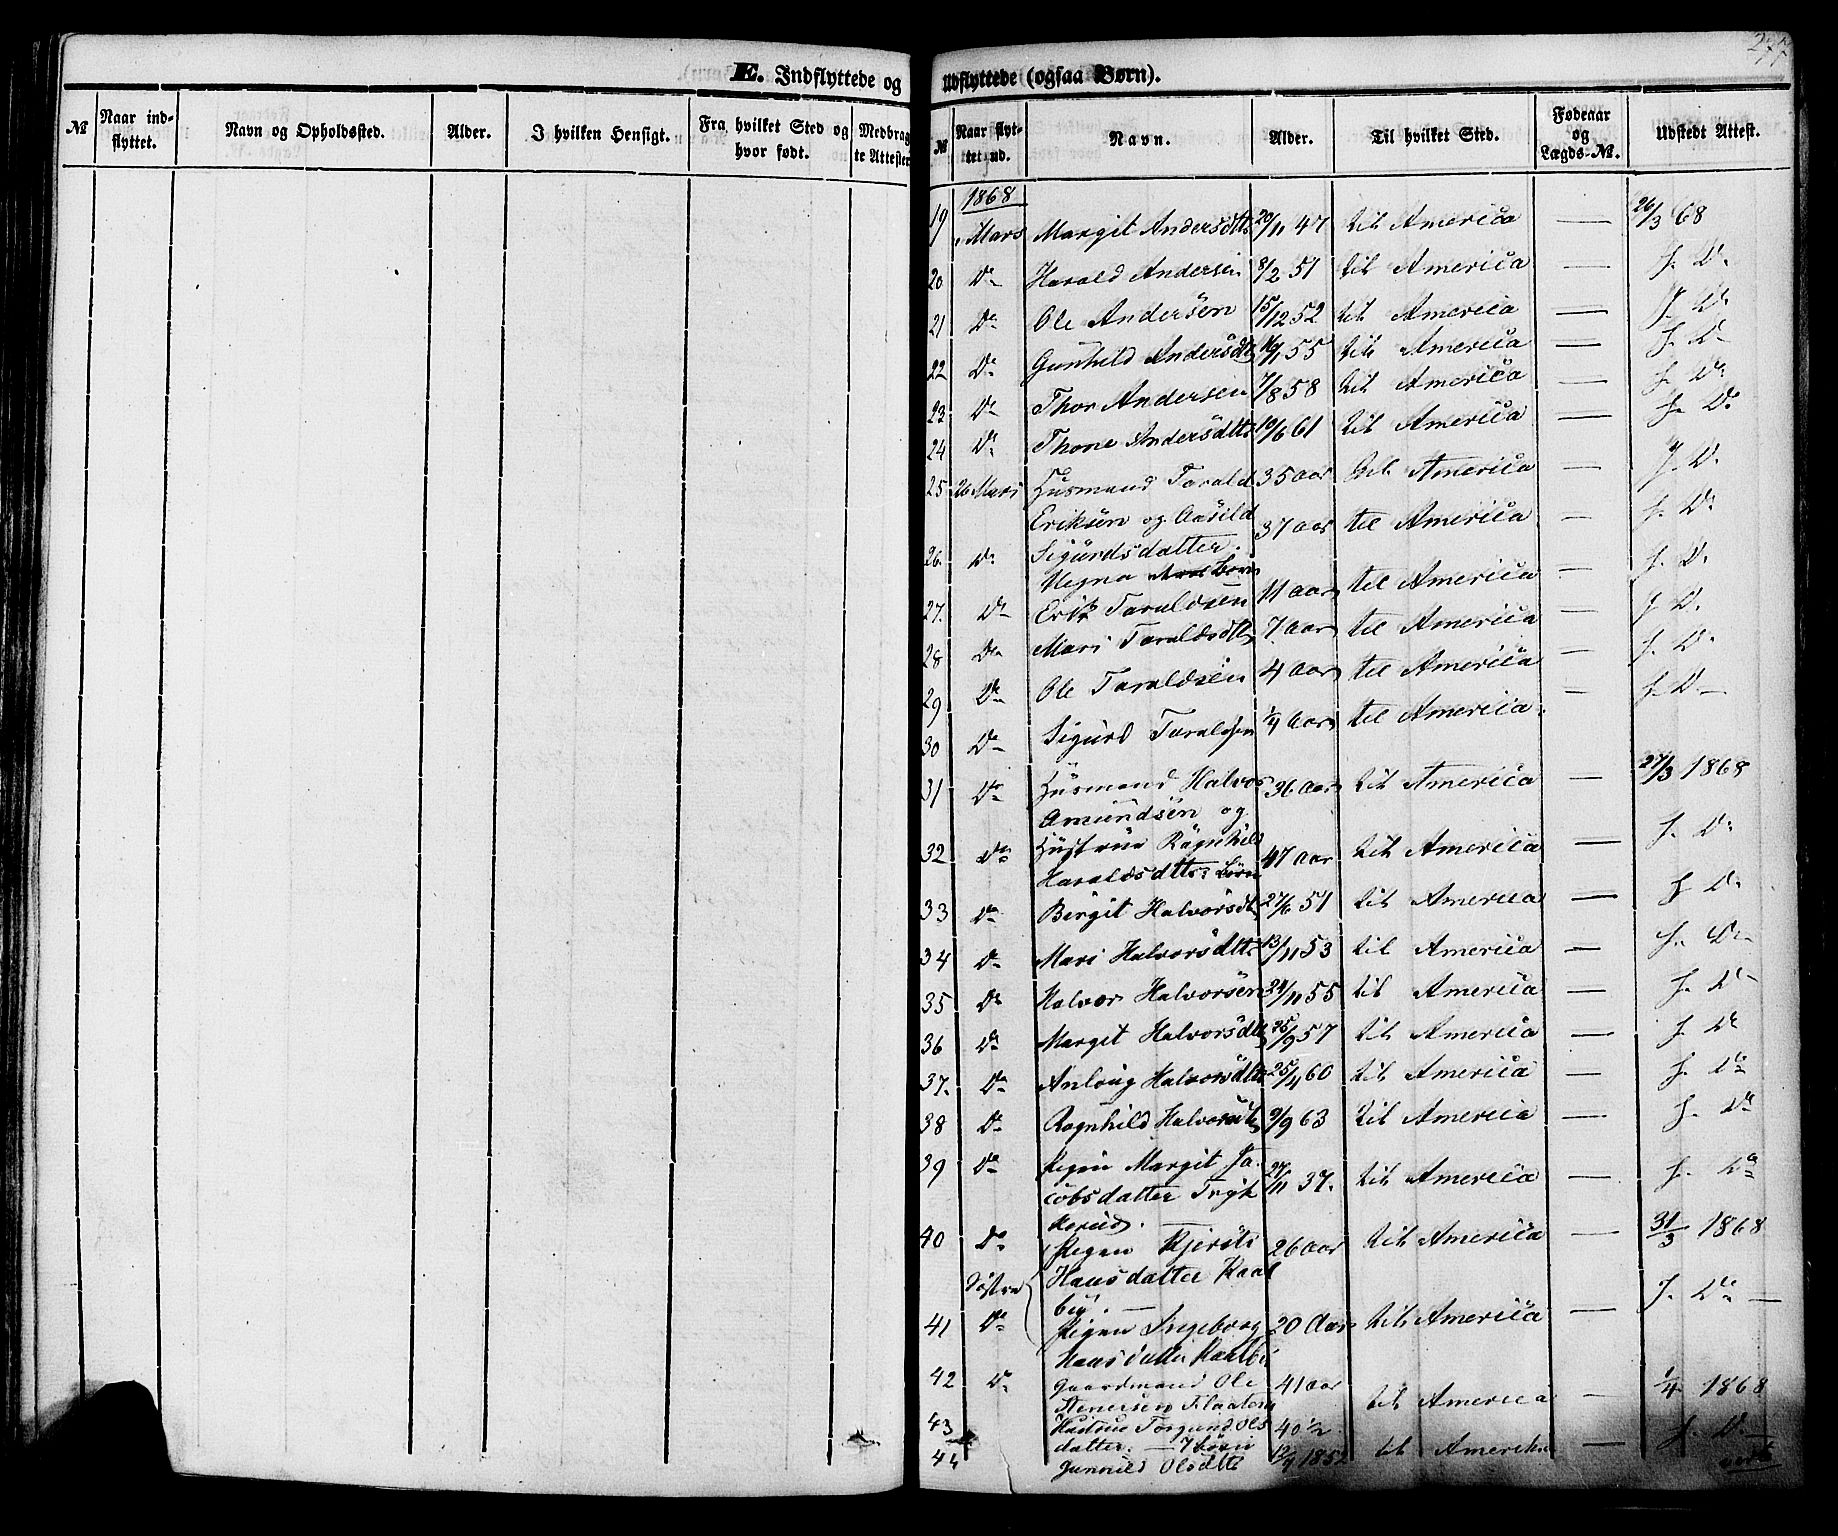 277
E. Indflyttede og
№ Naar ind-flyttet. Navn og Opholdssted. Alder. I hvilken Hensigt. Fra hvilket Sted og hvor født. Medbrag-te Attester
Udflyttede (ogsaa Børn).
№ Naar flyt-tet ud. Navn. Alder. Til hvilket Sted. Fødeaar og Lægds-№. Udstedt Attest.
1868
19 Mars Margit Andersdtt 20/11 47 til America — 26/3 68
20 Do Harald Andersen 8/2 51 til America — f. Do
21 Do Ole Andersön 15/12 52 til America — f. Do
22 Do Gunhild Andersdtt 16/1 55 til America — f. Do
23 Do Thor Andersen 7/8 58 til America — f. Do
24 Do Thone Andersdtt 10/6 61 til America — f. Do
25 26 Mars Husmand Tarald 35 aar til America — f. Do
Eriksön og Aasild 37 aar til America — f. Do
26. Do Sigurdsdatter.
Vegna Børn
27. Do Erik Taraldsen 11 aar til America — f. Do
28 Do Mari Taraldsdtt 7 aar til America — f. Do
29 Do Ole Taraldsen 4 aar til America — f. Do
30 Do Sigurd Taraldsen 1/4 aar til America. — f. Do —
31 Do Husmand Halvor 36 aar til America — 27/3 1868
Amundsën og
32 Do Hustrue Ragnhild 47 aar til America — f. Do
Haraldsdtt: Børn
33 Do Birgit Halvorsdt 27/6 51 til America — f. Do
34 Do Mari Halvorsdtt 13/11 53 til America — f. Do
35 Do Halvor Halvorsen 24/11 55 til America — f. Do
36 Do Margit Halvorsdtt 25/9 57 til America — f. Do
37. Do Anloug Halvorsdtt 25/4 60 til America — f. Do
38 Do Ragnhild Halvorsdt 9/9 63 til America — f. Do
39 Do Pigen Margit Ja- 27/11 37. til America — f. Do
cobsdatter Tryk
kerud.
40 Do Pigen Kjersti 26 aar til America — 31/3 1868
Søstre Hansdatter Kaal
by. —
41 Do Pigen Ingeborg 20 Aar til America — f. Do —
Hansdatter Kaalby
42 Do Gaardmand Ole 41 aar til America — 1/4 1868
Stenersen Flaaten
43 Hustrue Torgund Ols 40 1/2
datter. — 7 Børn f. Do —
44 Gunnild Olsdtt 12/7 1852 til Amerika — vert